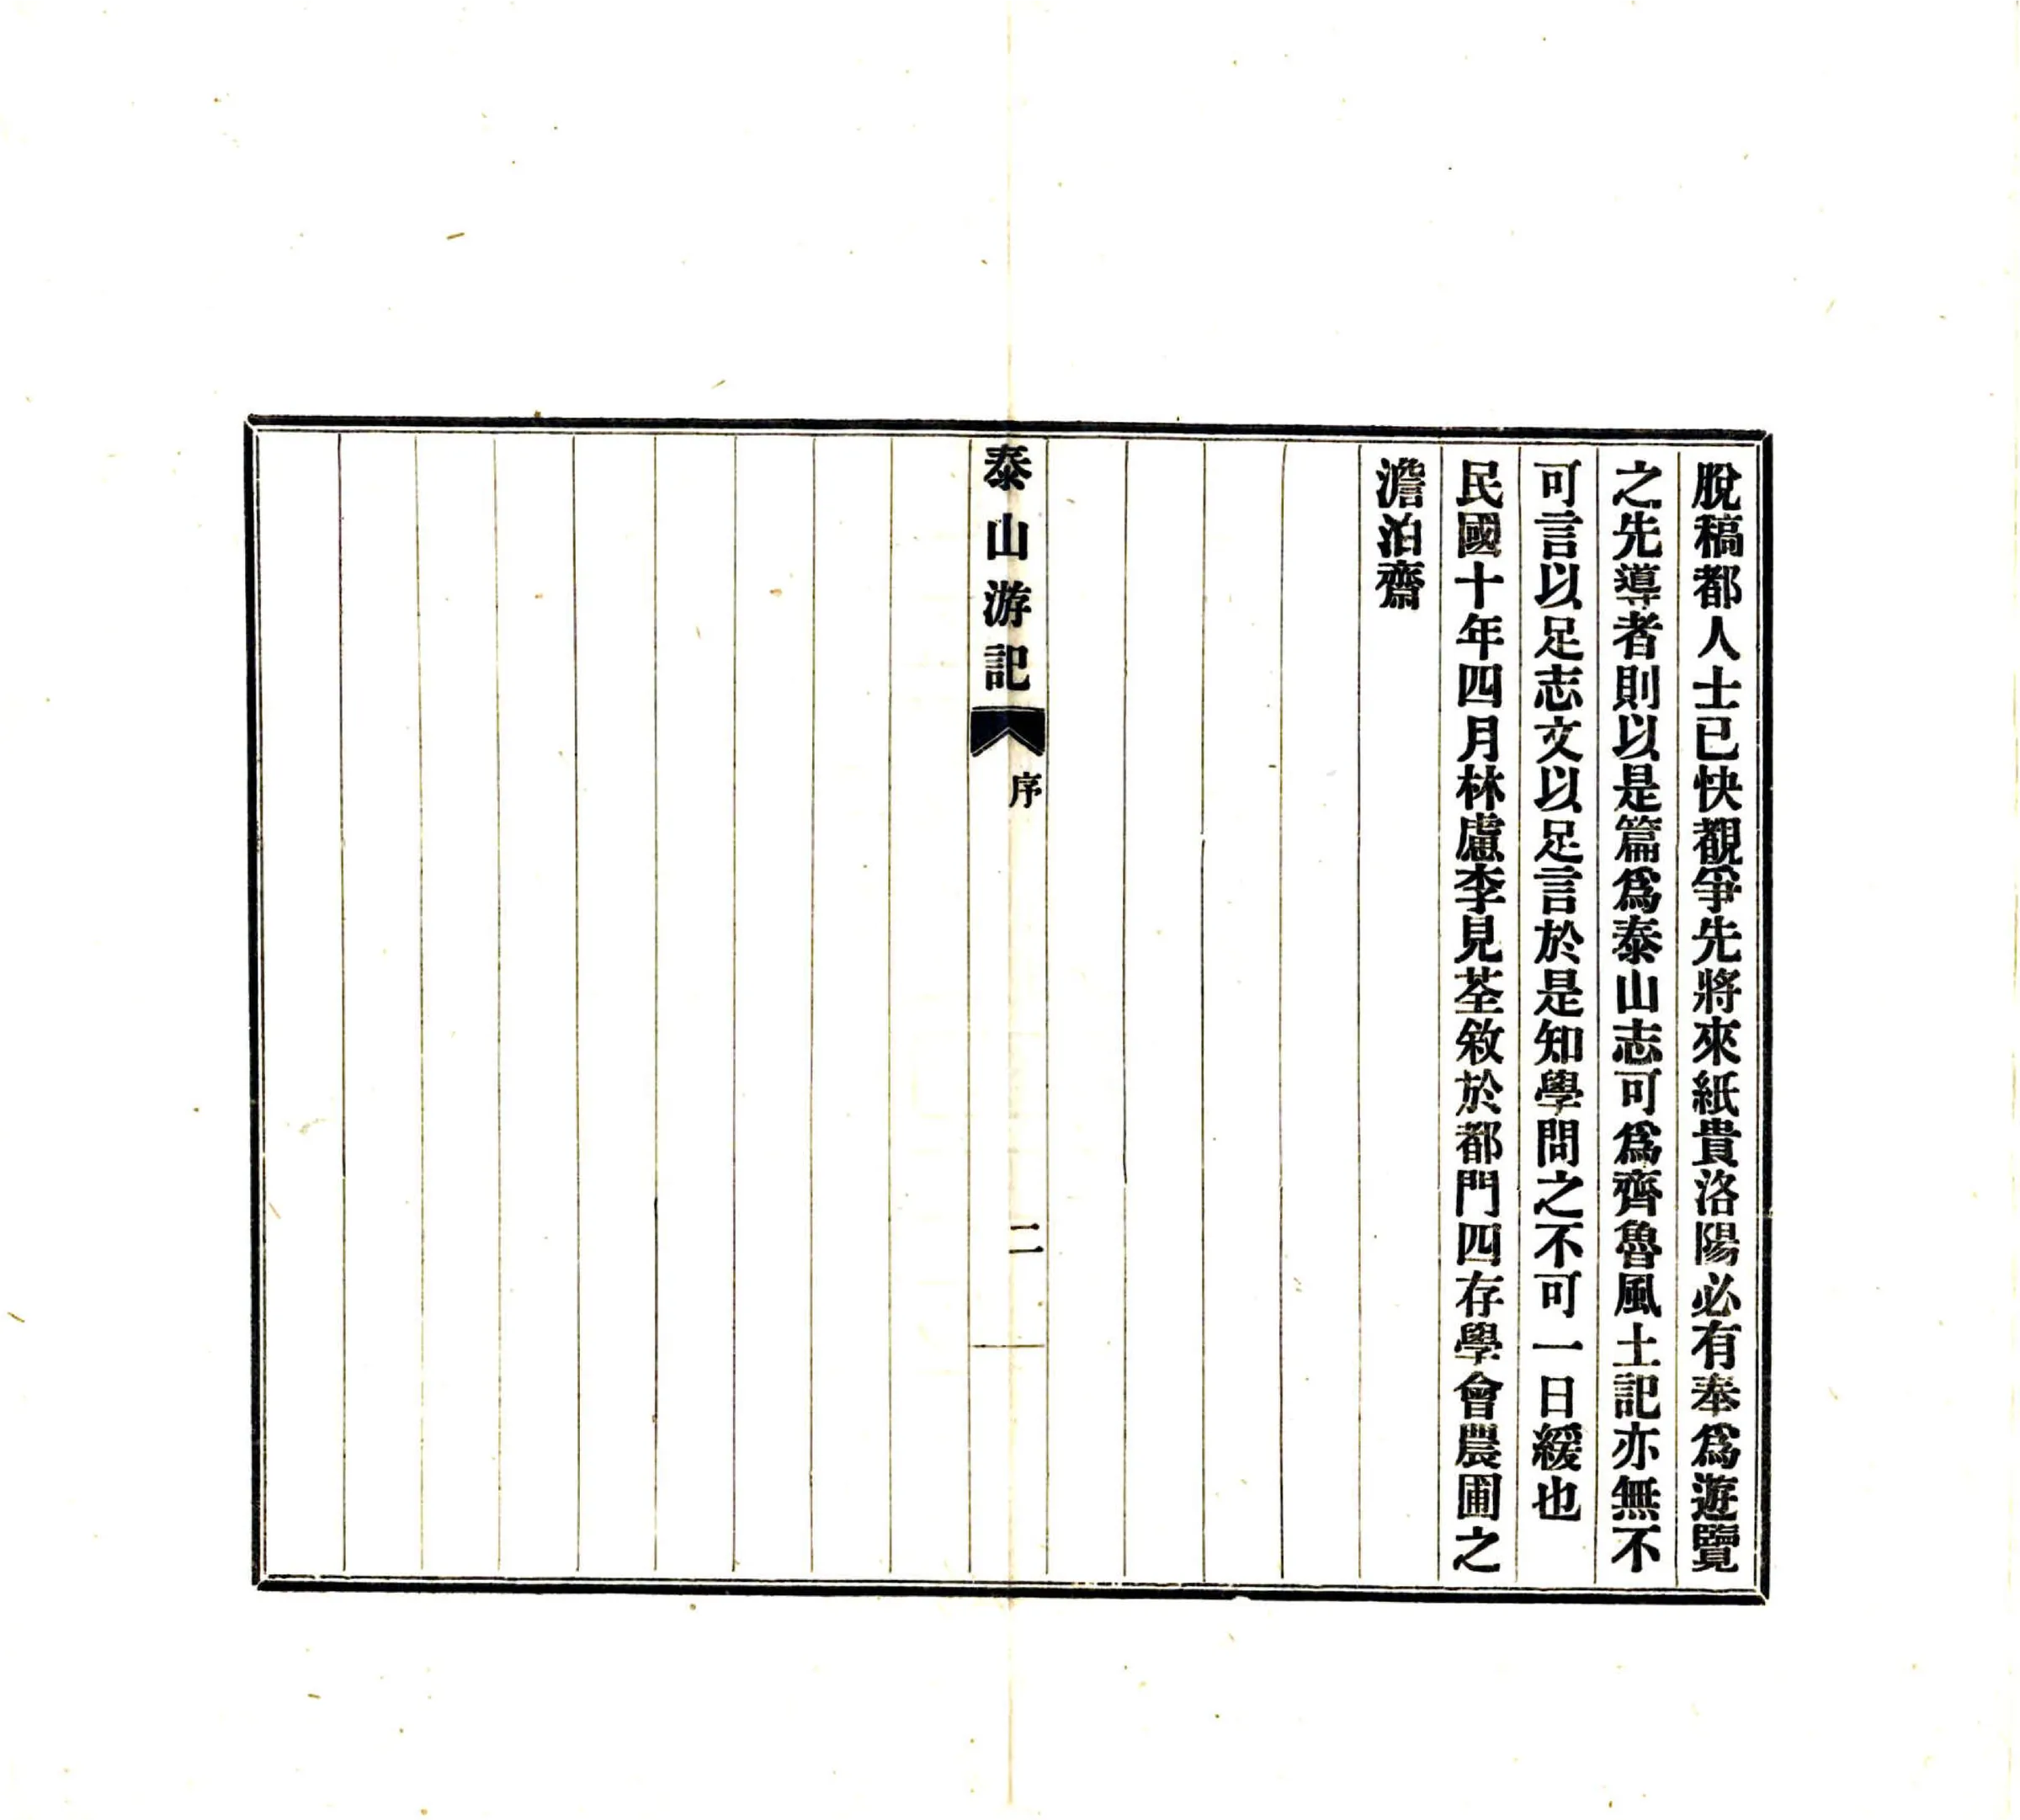 脫稿都人士已快覩爭先將來紙貴洛陽必有奉爲遊覽
之先導者則以是篇爲泰山志可爲齊魯風土記亦無不
可言以足志文以足言於是知學問之不可一日緩也
民國十年四月林慮李見荃敘於都門四存學會農圃之
澹泊齋
泰山游記
序
二